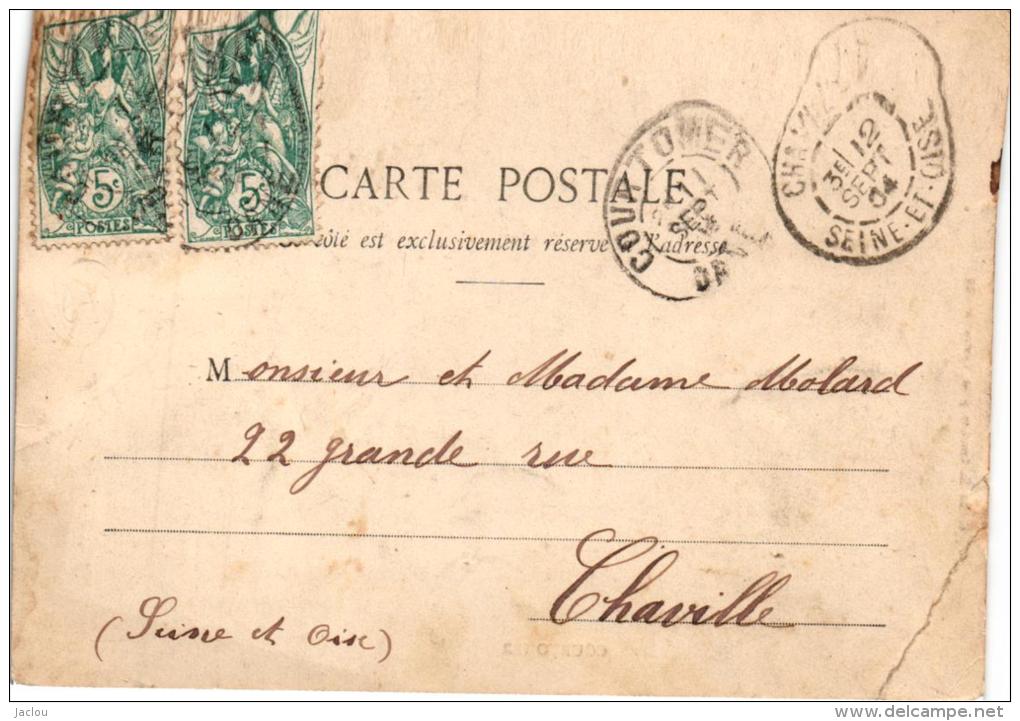 5c
POSTES
5c
POSTES
CARTE POSTALE
côté est exclusivement réservé à l'adresse
COURTOMER
11
SEPT
04
CHAVILLE
3E
12
SEPT
04
SEINE-ET-OISE
Monsieur et Madame Molard
22 grande rue
Chaville
(Seine et Oise)
jaclou
delcampe.net